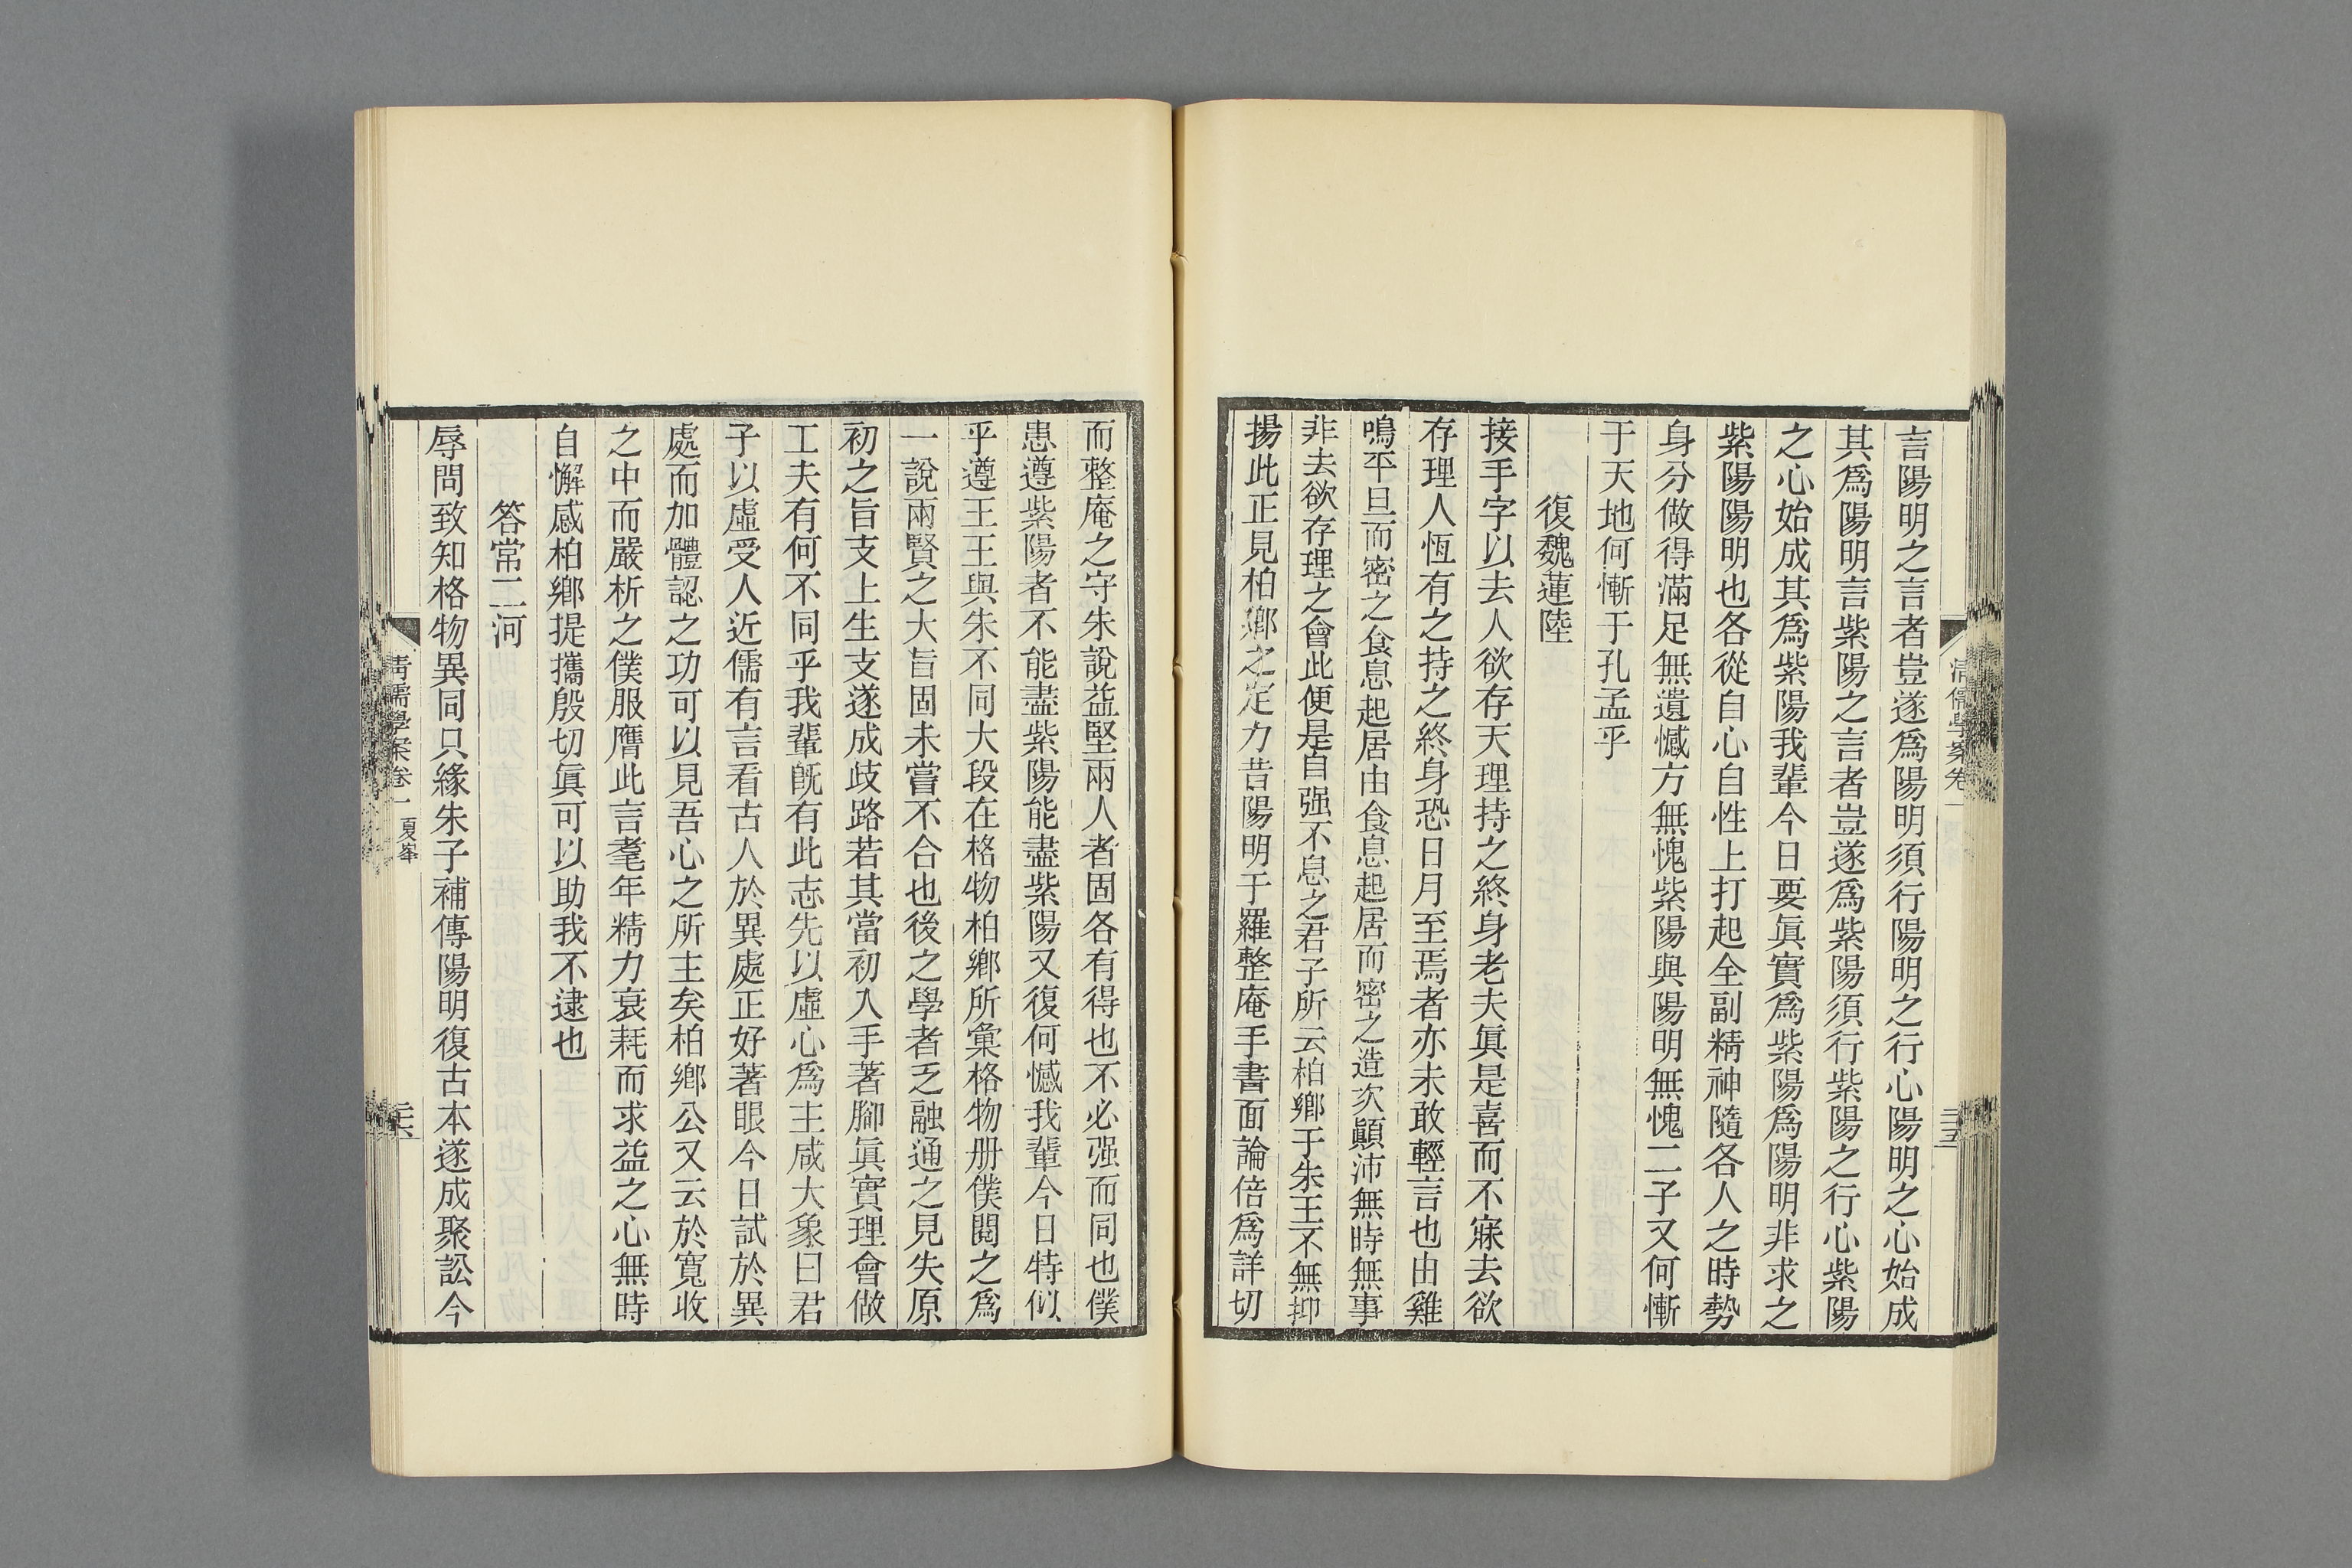 清儒學案卷一
三五
言陽明之言者豈遂爲陽明須行陽明之行心陽明之心始成
其爲陽明言紫陽之言者豈遂爲紫陽須行紫陽之行心紫陽
之心始成其爲紫陽我輩今日要眞實爲紫陽爲陽明非求之
紫陽陽明也各從自心自性上打起全副精神隨各人之時勢
身分做得滿足無遺憾方無愧紫陽與陽明無愧二子又何慚
于天地何慚于孔孟乎
復魏蓮陸
接手字以去人欲存天理持之終身老夫眞是喜而不寐去欲
存理人恆有之持之終身恐日月至焉者亦未敢輕言也由雞
鳴平旦而密之食息起居由食息起居而密之造次顚沛無時無事
非去欲存理之會此便是自强不息之君子所云柏鄉于朱王不無抑
揚此正見柏鄉之定力昔陽明于羅整庵手書面論倍爲詳切
而整庵之守朱說益堅兩人者固各有得也不必强而同也僕
患遵紫陽者不能盡紫陽能盡紫陽又復何憾我輩今日特似
乎遵王王與朱不同大段在格物柏鄉所彙格物册僕閱之爲
一說兩賢之大旨固未嘗不合也後之學者乏融通之見失原
初之旨支上生支遂成歧路若其當初入手著腳眞實理會做
工夫有何不同乎我輩旣有此志先以虛心爲主咸大象曰君
子以虛受人近儒有言看古人於異處正好著眼今日試於異
處而加體認之功可以見吾心之所主矣柏鄉公又云於寬收
之中而嚴析之僕服膺此言耄年精力衰耗而求益之心無時
自懈感柏鄉提攜殷切眞可以助我不逮也
答常二河
辱問致知格物異同只緣朱子補傳陽明復古本遂成聚訟今
清儒學案卷一
夏峯
三六